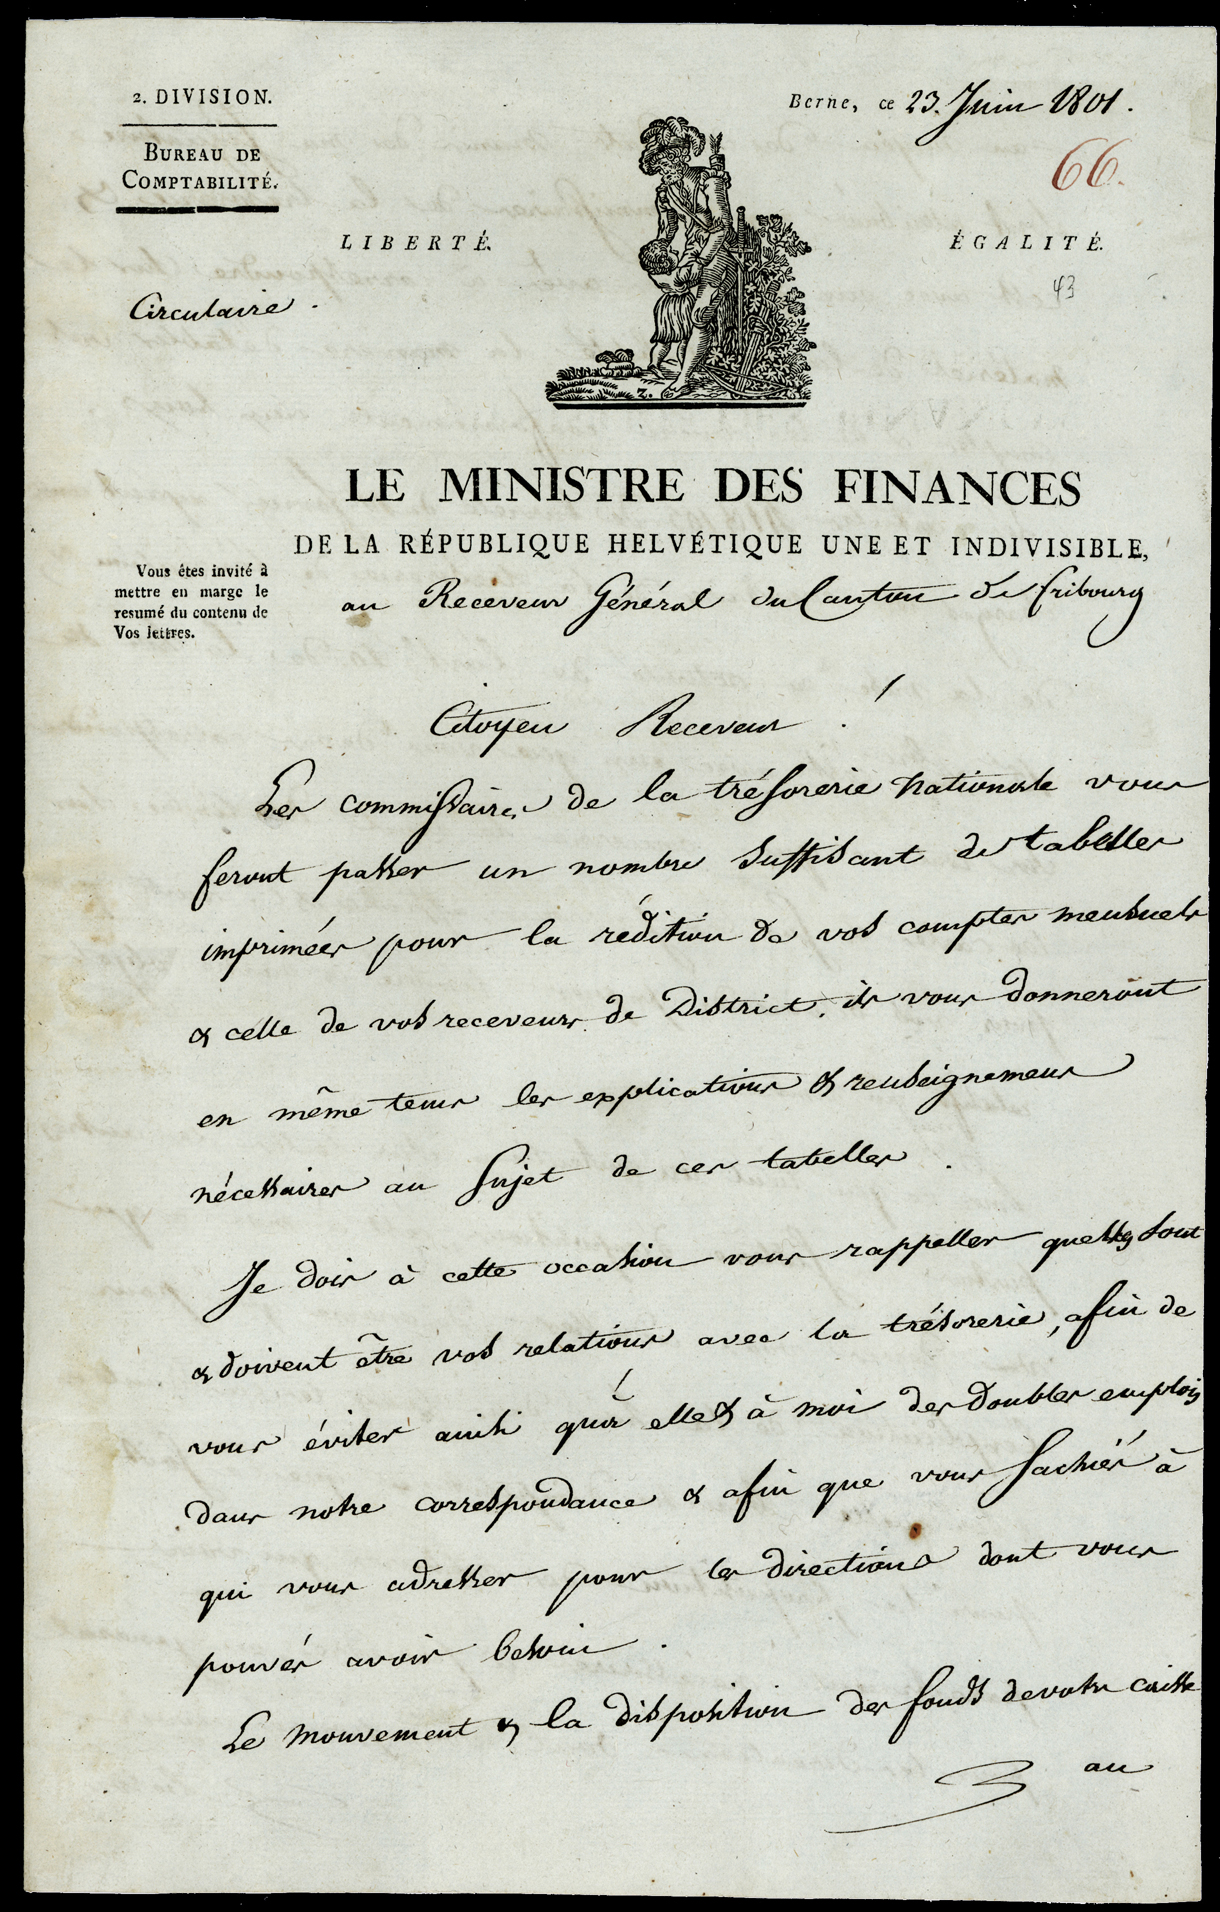 2. DIVISION.
BUREAU DE
COMPTABILITÉ.
Berne, ce 23. Juin 1801.
66.
LIBERTÉ.
ÉGALITÉ.
43
Circulaire.
Z.
LE MINISTRE DES FINANCES
DE LA RÉPUBLIQUE HELVÉTIQUE UNE ET INDIVISIBLE,
Vous êtes invité à
mettre en marge le
resumé du contenu de
Vos lettres.
au Receveur Général du Canton de fribourg
Citoyen Receveur !
Les commissaires de la trésorerie Nationale vous
feront passer un nombre suffisant de tabelles
imprimées pour la rédition de vos comptes mensuels
& celle de vos receveurs de District, ils vous donneront
en même tems les explications & renseignemens
nécessaires au sujet de ces tabelles.
Je dois à cette occasion vous rappeller quelles sont
& doivent être vos relations avec la trésorerie, afin de
vous éviter ainsi qu'à elle & à moi des doubles emplois
dans notre correspondance & afin que vous sachiés à
qui vous adresser pour les directions dont vous
pouvés avoir besoin.
Le mouvement & la disposition des fonds de votre caisse
au